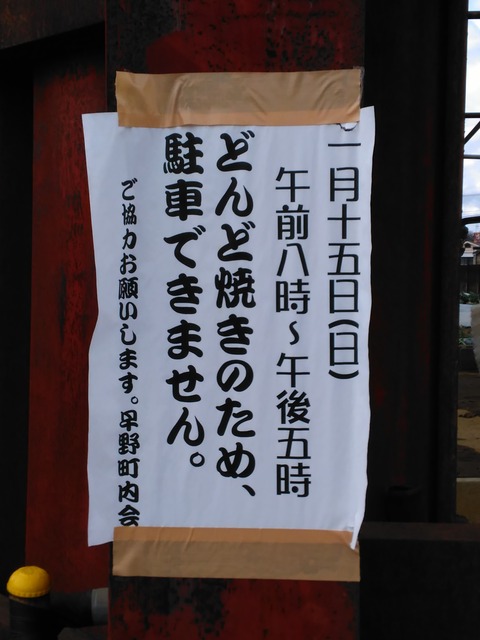 一月十五日(日)
午前八時～午後五時
どんど焼きのため、
駐車できません。
ご協力お願いします。早野町内会